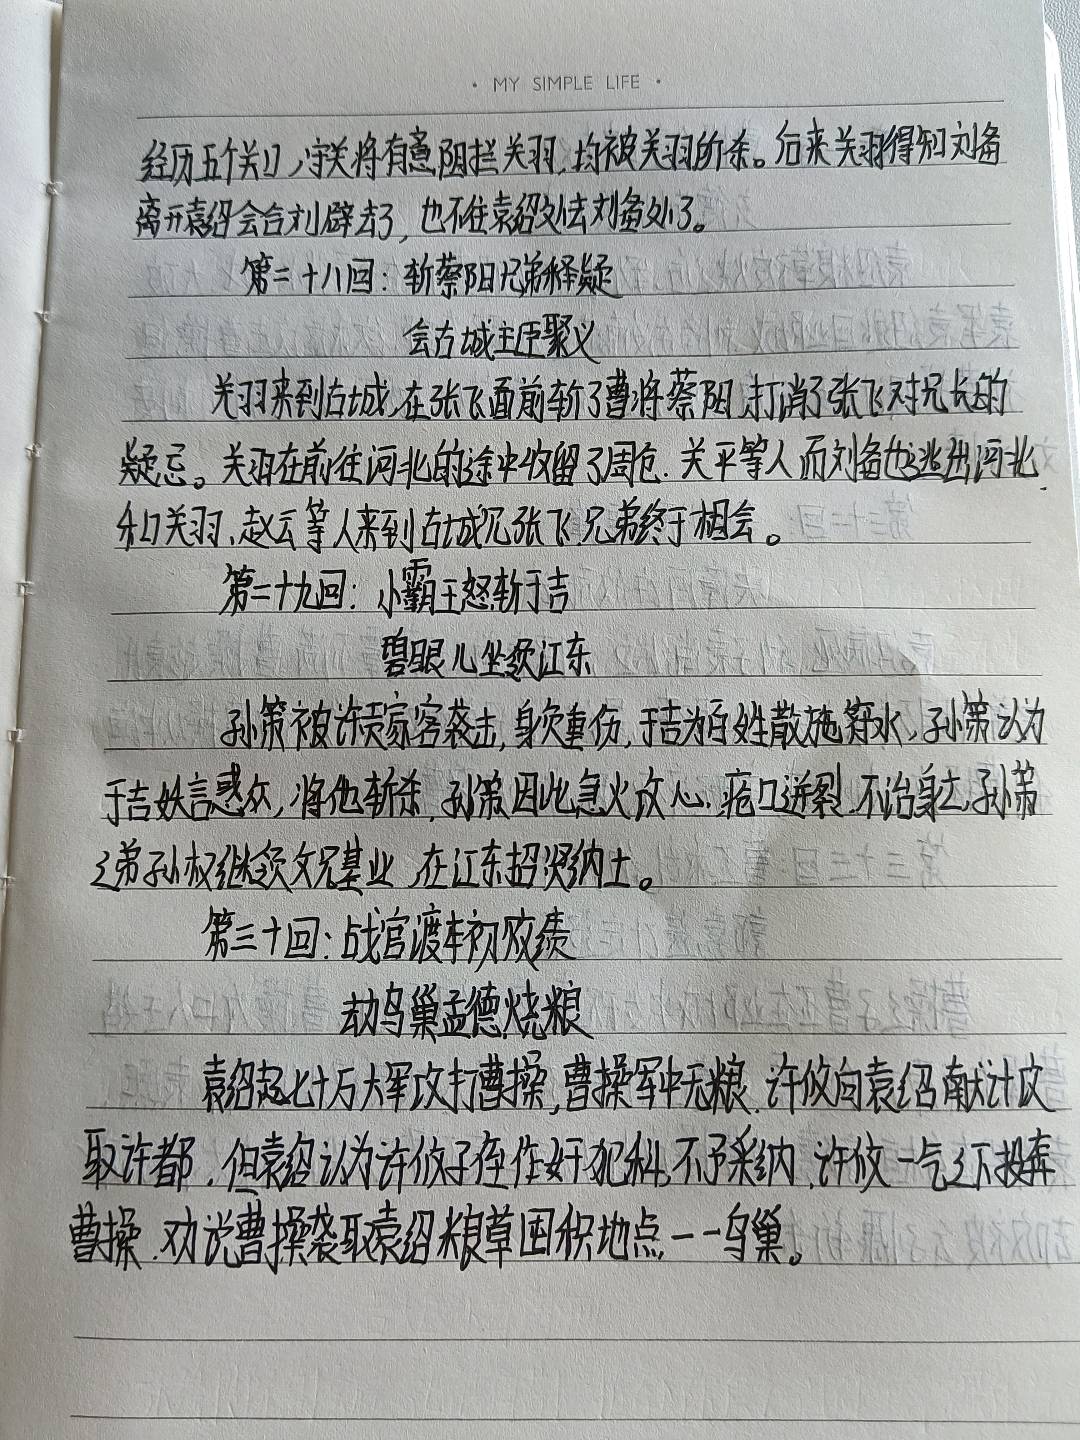 · MY SIMPLE LIFE ·
经历五个关口,守关将有意阻拦关羽,均被关羽所杀。后来关羽得知刘备
离开袁绍会合刘辟去了,也不住袁绍处去刘备处了。
第二十八回:斩蔡阳兄弟释疑
会古城主臣聚义
关羽来到古城,在张飞面前斩了曹将蔡阳,打消了张飞对兄长的
疑忌。关羽在前往河北的途中收留了周仓、关平等人而刘备也逃出河北,
和关羽、赵云等人来到古城见张飞,兄弟终于相会。
第二十九回:小霸王怒斩于吉
碧眼儿坐领江东
孙策被许贡家客袭击,身负重伤,于吉为百姓散施符水,孙策认为
于吉妖言惑众,将他斩杀,孙策因此急火攻心,疮口迸裂,不治身亡,孙策
之弟孙权继领父兄基业,在江东招贤纳士。
第三十回:战官渡本初败绩
劫乌巢孟德烧粮
袁绍起七十万大军攻打曹操,曹操军中无粮,许攸向袁绍献计攻
取许都,但袁绍认为许攸子侄作奸犯科,不予采纳,许攸一气之下投奔
曹操,劝说曹操袭取袁绍粮草囤积地点——乌巢。